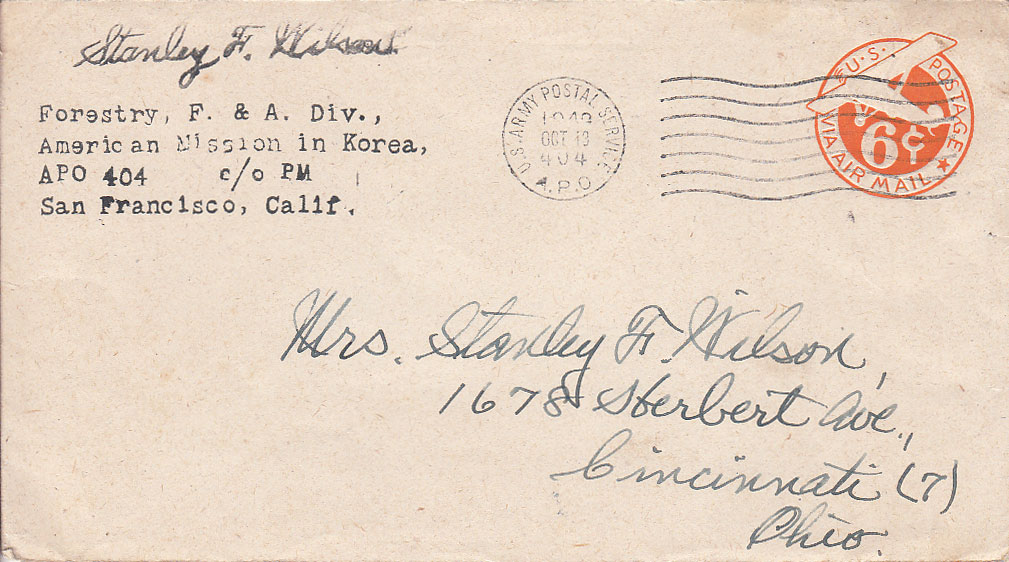 Stanley F. Wilson
Forestry, F. & A. Div.,
American Mission in Korea,
APO 404 c/o PM
San Francisco, Calif.
U.S. ARMY POSTAL SERVICE
OCT 13
404
A.P.O.
U.S. POSTAGE
6¢
VIA AIR MAIL
Mrs. Stanley F. Wilson,
1678 Herbert Ave.,
Cincinnati (7)
Ohio.